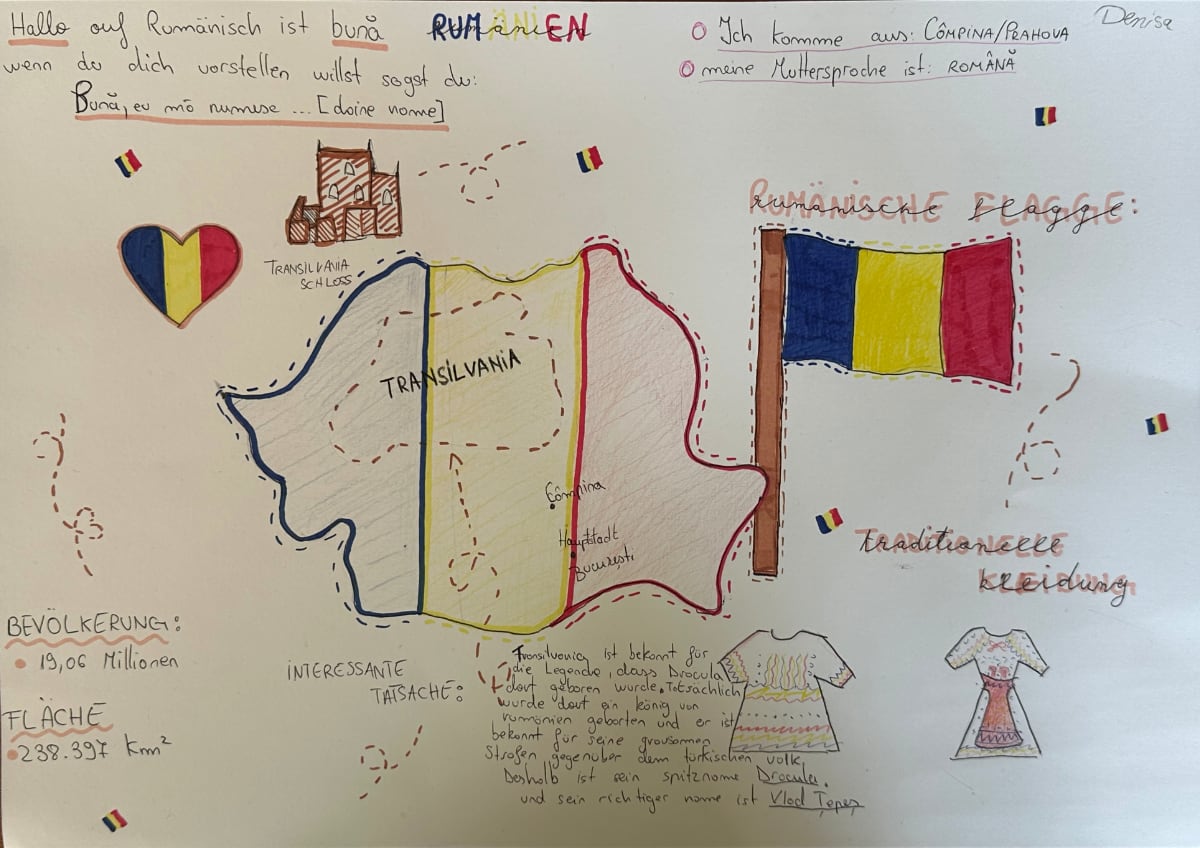 Hallo auf Rumänisch ist bună
wenn du dich vorstellen willst sagst du:
Bună, eu mă numesc ... [deine name]
RUMÄNIEN
Ich komme aus: CÂMPINA/PRAHOVA
meine Muttersprache ist: ROMÂNĂ
Denisa
TRANSILVANIA
SCHLOSS
RUMÄNISCHE FLAGGE:
TRANSILVANIA
Câmpina
Hauptstadt
București
TRADITIONELLE
KLEIDUNG
BEVÖLKERUNG:
19,06 Millionen
FLÄCHE
238.397 Km²
INTERESSANTE
TATSACHE:
Transilvania ist bekannt für
die Legende, dass Dracula
dort geboren wurde. Tatsächlich
wurde dort ein könig von
rumänien geborten und er ist
bekannt für seine grausamen
Strafen gegenüber dem türkischen volk.
Deshalb ist sein spitzname Dracula.
und sein richtiger name ist Vlad Țepeș